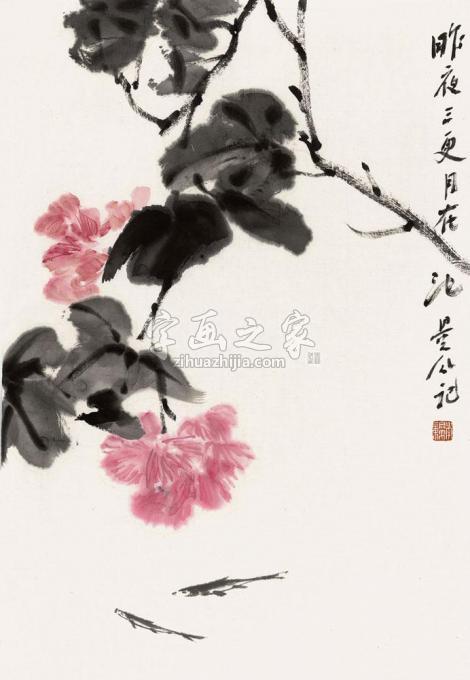 昨夜三更月在池 公記
字画之家
zihuazhijia.com